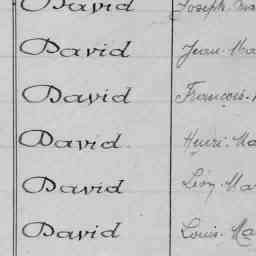 David Joseph
David Jean
David François
David Henri
David Léon
David Louis